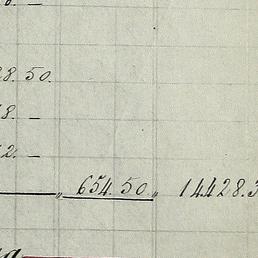 8. —
28.50.
8. —
2. —
„ 654.50 „ 14428.3